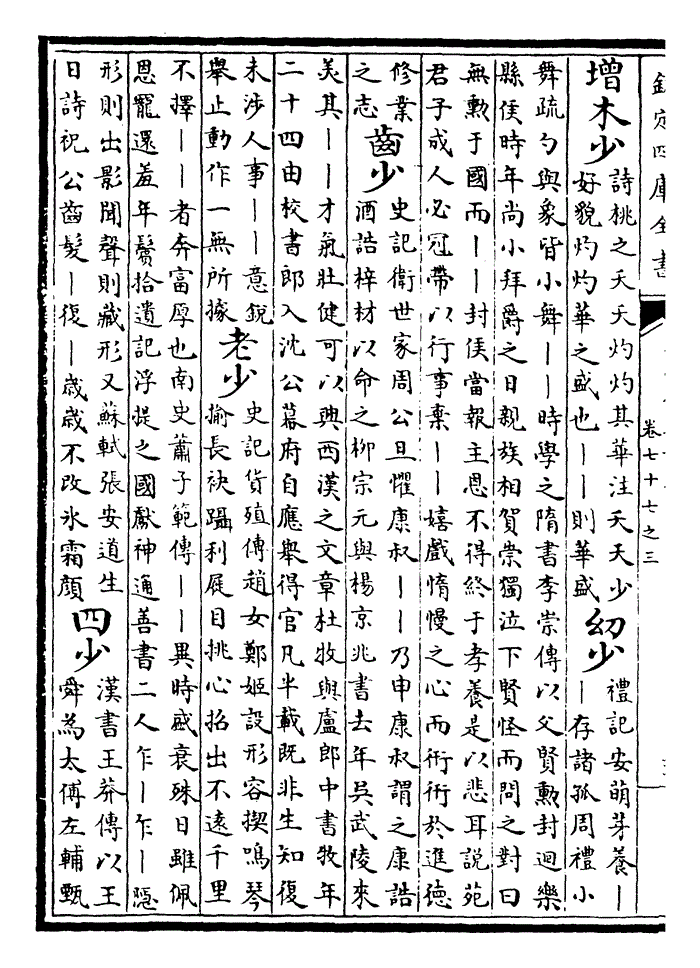 欽定四庫全書
卷七十七之三
增木少
詩桃之夭夭灼灼其華注夭夭少
好貌灼灼華之盛也——則華盛
幼少
禮記安萌芽養—
—存諸孤周禮小
舞疏勺與象皆小舞——時學之隋書李崇傳以父賢勲封迴樂
縣侯時年尚小拜爵之日親族相賀崇獨泣下賢怪而問之對曰
無勲于國而——封侯當報主恩不得終于孝養是以悲耳說苑
君子成人必冠帶以行事棄——嬉戲惰慢之心而衎衎於進德
修業
之志
齒少
史記衛世家周公旦懼康叔——乃申康叔謂之康誥
酒誥梓材以命之柳宗元與楊京兆書去年吳武陵來
美其——才氣壯健可以興西漢之文章杜牧與盧郎中書牧年
二十四由校書郎入沈公幕府自應舉得官凡半載既非生知復
未涉人事——意銳
舉止動作一無所據
老少
史記貨殖傳趙女鄭姬設形容揳鳴琴
揄長袂躡利屣目挑心招出不遠千里
不擇——者奔富厚也南史蕭子範傳——異時盛衰殊日雖佩
恩寵還羞年鬢拾遺記浮提之國獻神通善書二人乍—乍—隱
形則出影聞聲則藏形又蘇軾張安道生
日詩祝公齒髮—復—歲歲不改氷霜顔
四少
漢書王莽傳以王
舜為太傅左輔甄